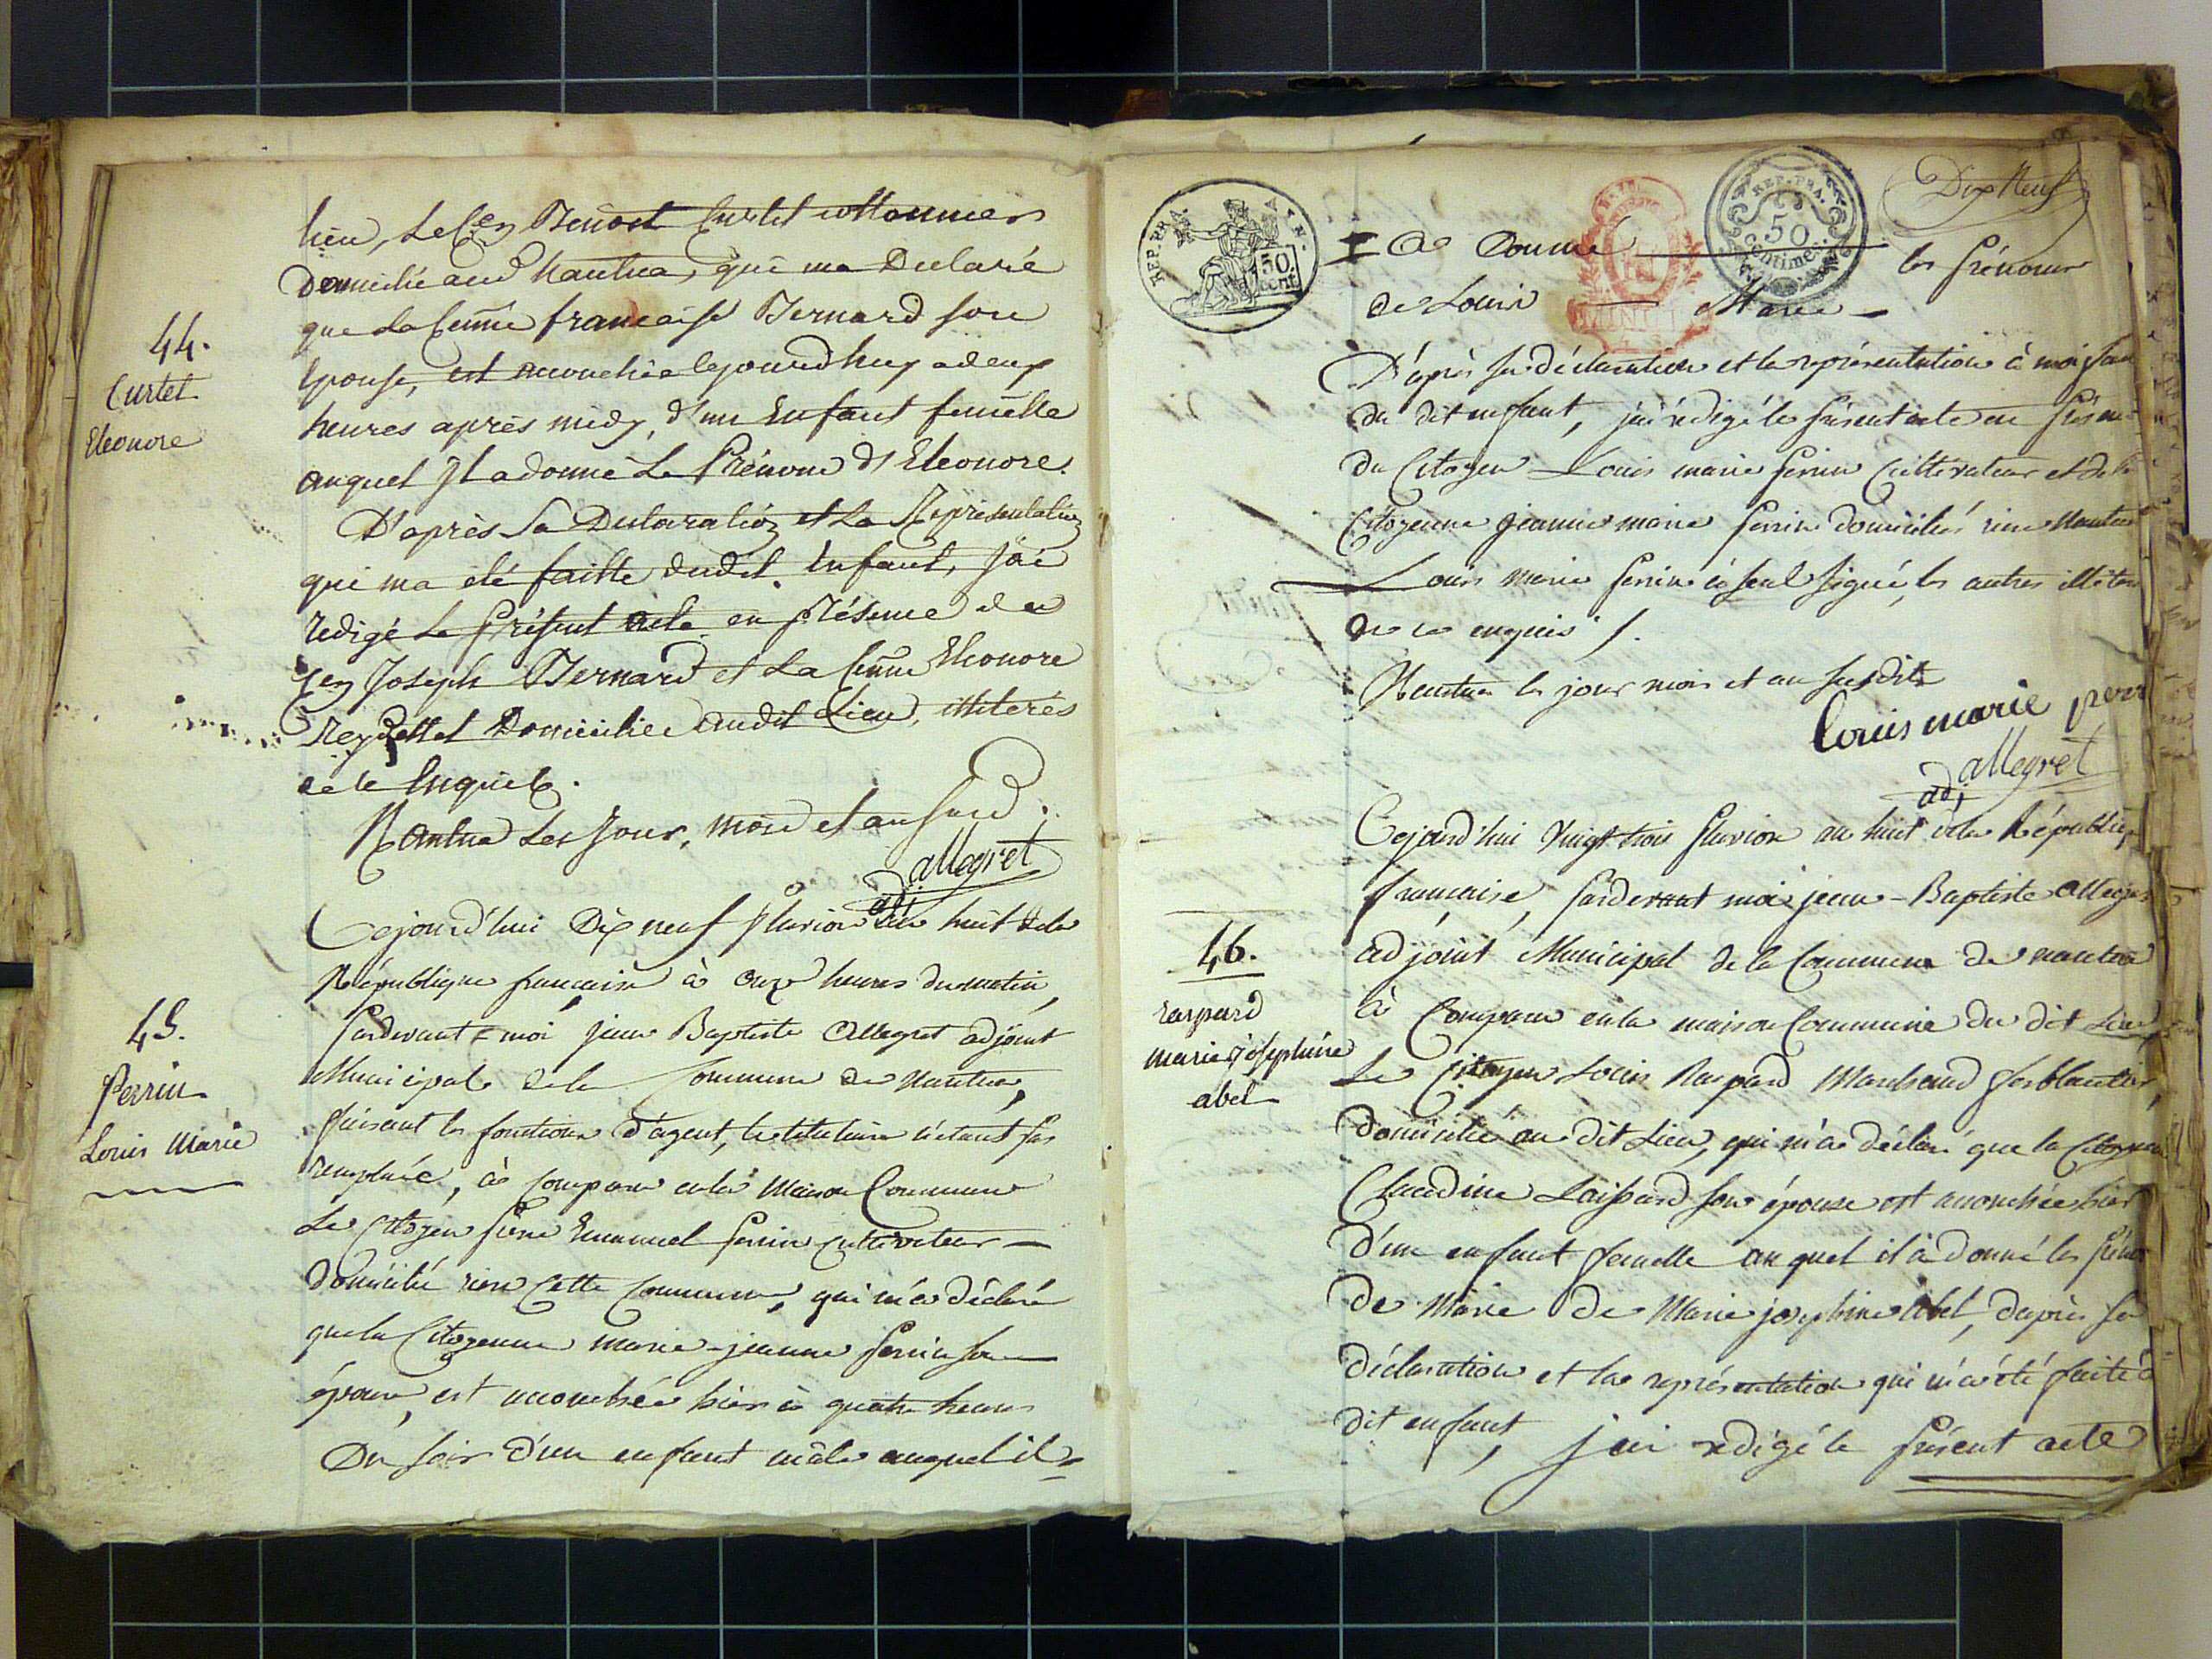 lieu, Le Cen Benoit Curtet cottonnier
Domicilié aud Nantua, qui ma Declaré
que La Cenne francoise Bernard son
Epouse, est accouchée cejourdhuy a deux
heures après midy, d'un Enfant femelle
auquel Il a donné Le Prénom d'Eleonore.
D'après Sa Declaration et La Représentation
qui ma eté faitte dudit Enfant, j'ai
redigé Le Présent acte en présence du
Cen Joseph Bernard et La Cenne Eleonore
Domicilié audit Lieu, illiterés
de ce Enquis.
Nantua Les Jour, mois et an susd.
allegret
adj
44.
Curtet
Eleonore
Cejourd'hui Dix neuf Pluviose an huit de la
République francaise à onze heures du matin,
Pardevant moi jean Baptiste Allegret adjoint
Municipal de la Commune de Nantua,
faisant les fonctions d'agent, le titulaire n'etant pas
remplacé, à comparu en la Maison Commune
Le Citoyen Pierre Emanuel Perrin cultivateur
domicilié rière Cette Commune, qui m'a déclaré
que la Citoyenne marie-jeanne Perrin son
épouse, est accouchée hier à quatre heures
Du soir d'un enfant mâle auquel il
45.
Perrin
Louis Marie
REP. FRA.
50 cent.
REP. FRA.
50
centimes.
Dix Neuf
a Donné les Prénoms
de Louis Marie
D'après sa déclaration et la représentation à moi
du dit enfant, j'ai rédigé le présent acte en
du Citoyen Louis marie Perrin Cultivateur et de la
Citoyenne jeanne marie Perrin domiciliés rière
Louis marie Perrin à seul signé, les autres
de ce enquis /.
Nantua les jour mois et an susdits
Louis marie perr
allegret
adj
Cejourd'hui Vingt trois Pluviose an huit de la République
française, Pardevant moi jean-Baptiste
adjoint Municipal de la Commune de nantua
à Comparu en la maison Commune du dit Lieu
Le Citoyen Louis Raspard Marchand ferblantier
domicilié au dit Lieu, qui m'a déclaré que la
Claudine son épouse est accouchée hier
d'un enfant femelle auquel il a donné les
de Marie De Marie josephine abel, d'après sa
déclaration et la représentation qui m'a été faite
dit enfant, j'ai rédigé le présent acte
46.
raspard
marie josephine
abel